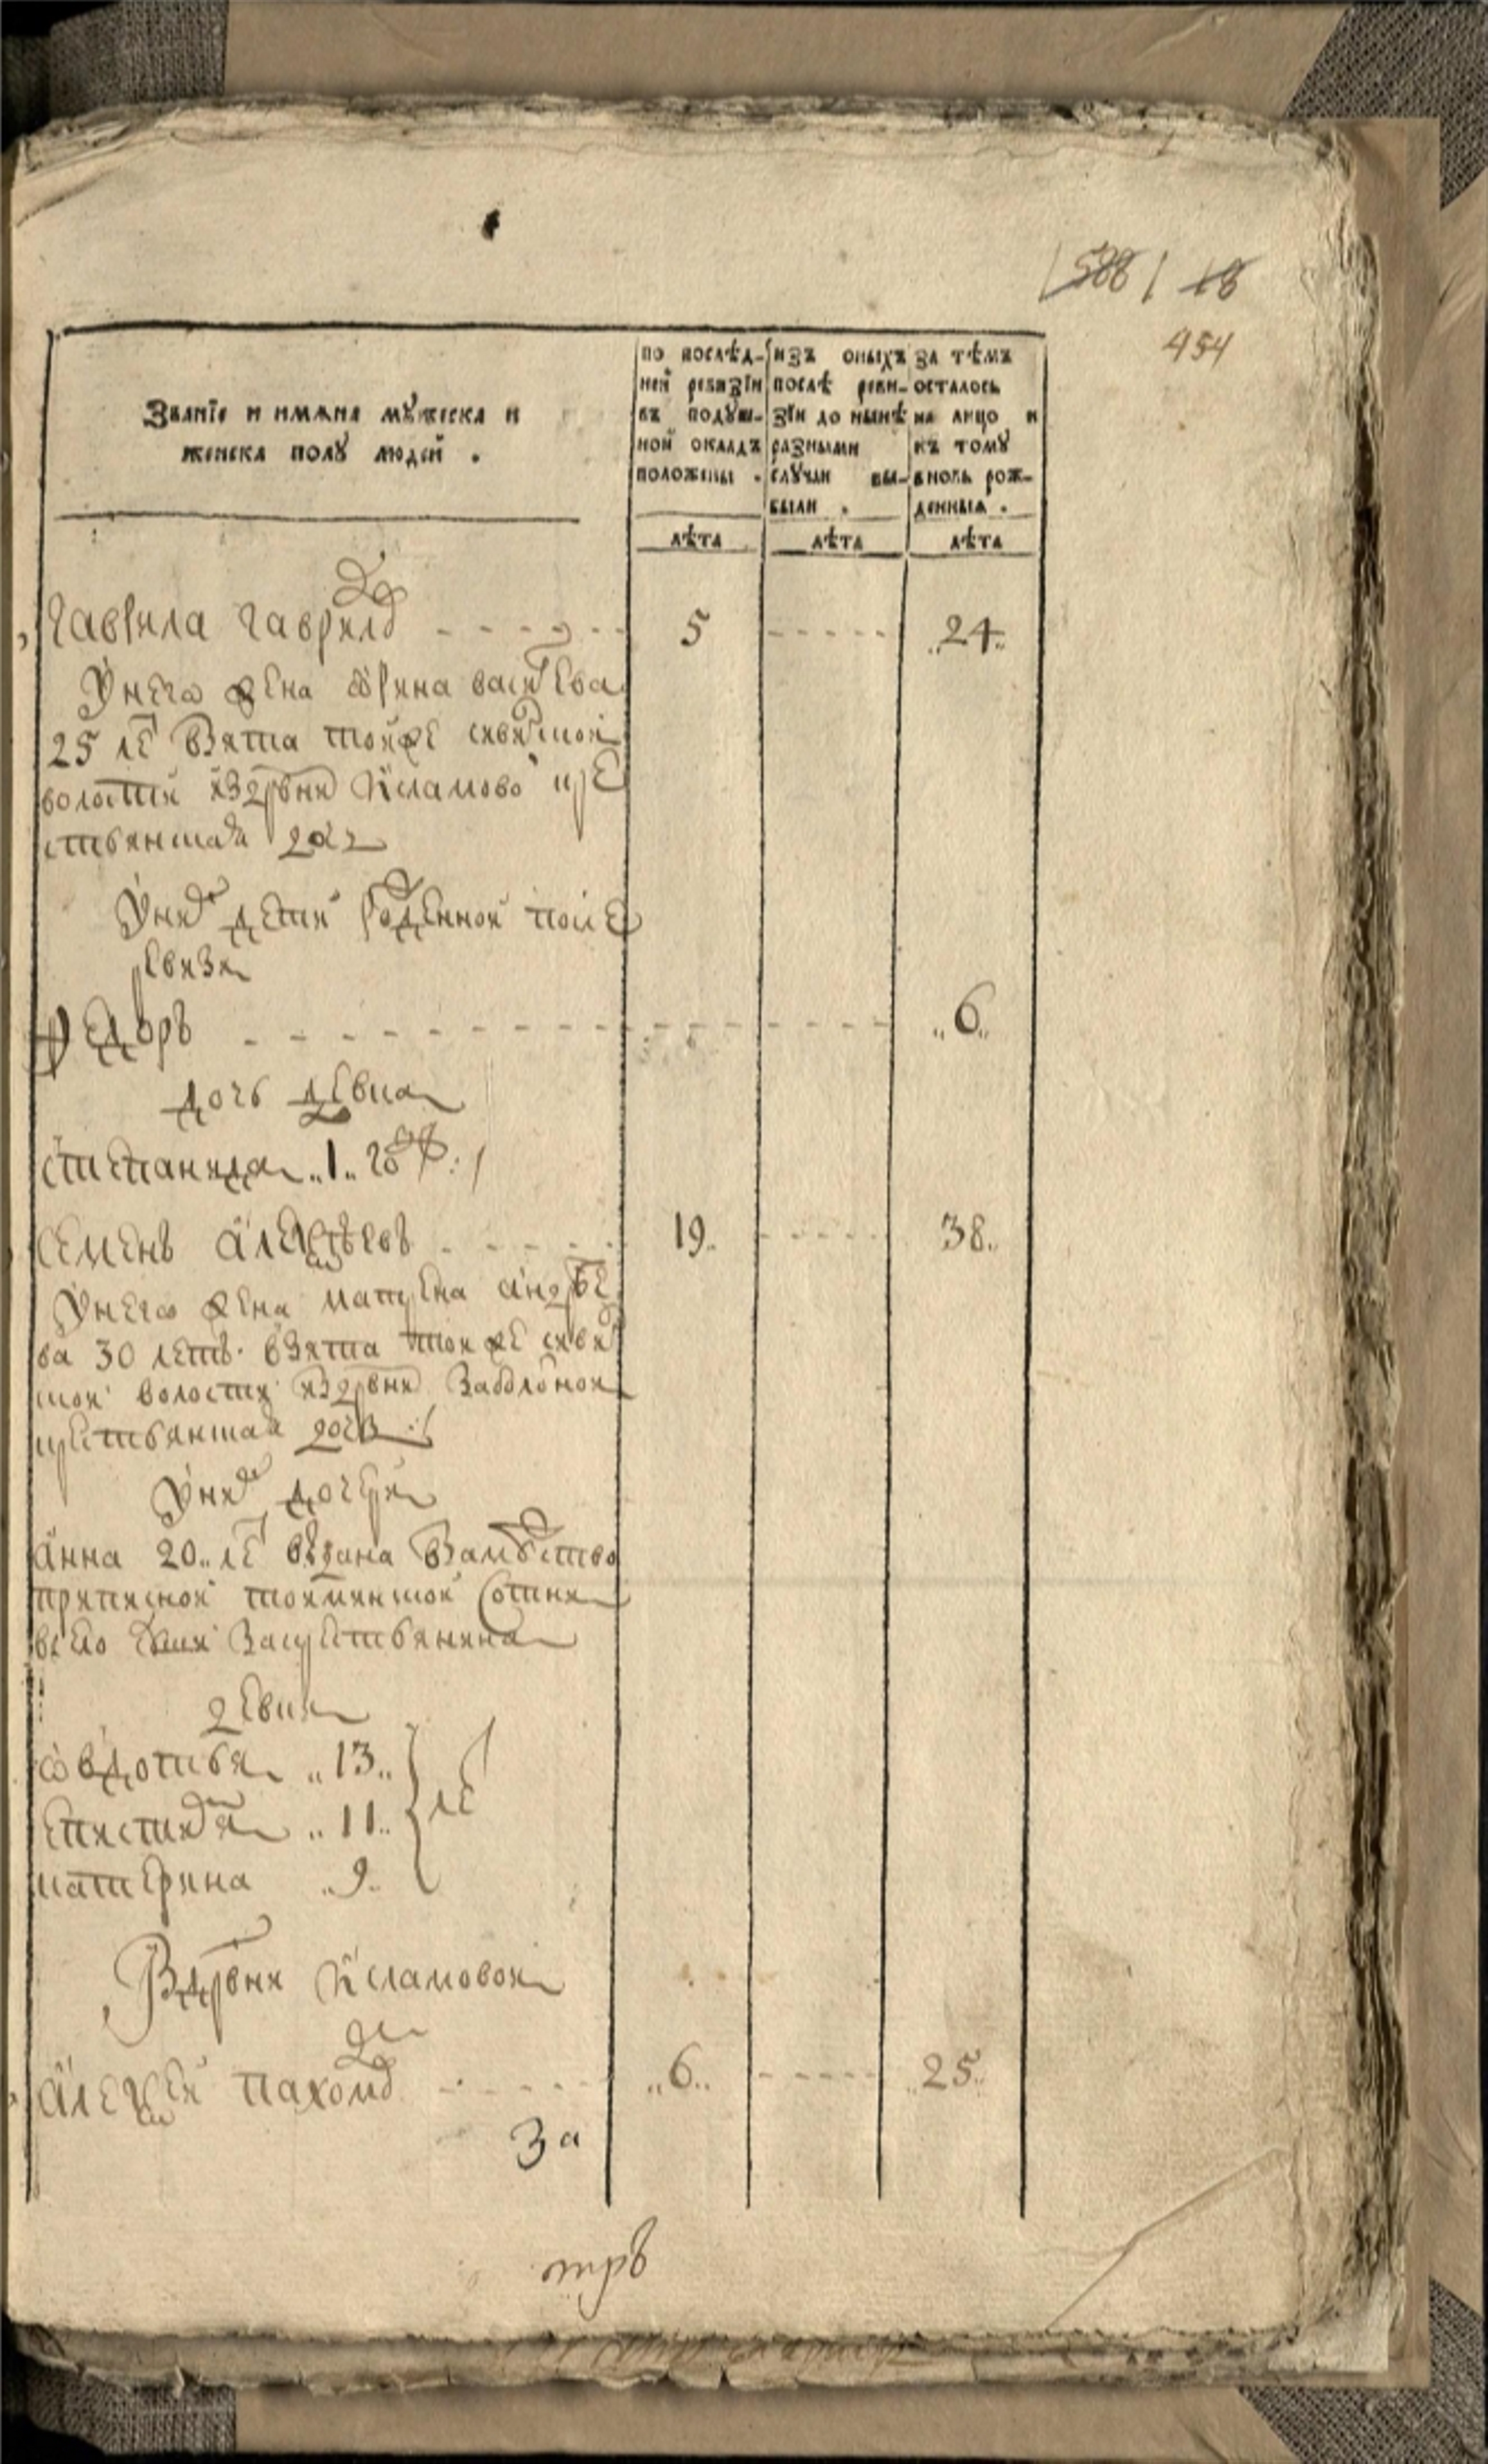 588 18
454
Званїе и имѧна мꙋжеска и
женска полꙋ людей .
по послѣд-
ней ревизїи
въ подꙋш-
ной окладъ
положены .
изъ оныхъ
послѣ реви-
зїи до нынѣ
разными
слꙋчаи вы-
были .
за тѣмъ
осталось
на лицо и
къ томꙋ
вновь рож-
денныѧ .
лѣта
лѣта
лѣта
гаврила гаврилов 5 24
У него жена ѡрина васильева
25 ле взята тойже
волости из дрвни крес
ствянская доч
У них дети рожденной после
ревизи
Федоръ 6
дочь девка
степанида 1 год
Семенъ алексѣевъ 19 38
У него жена матрена андрее
ва 30 летъ взята тоиже
ской волости из дрвни
крестьянская дочь
У них дочери
анна 20 ле выдана в замуство
приписной сотни
в село за крестьянина
девки
ѡвдотья 13
епистимия 11 ле
катерина 9
В дрвни
алексеи пахомов 6 25
За
трь